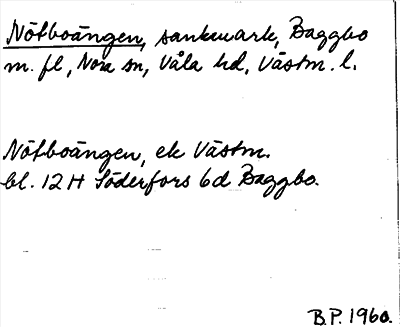 Nötboängen, sankmark, Baggbo
m. fl., Nora sn, Våla hd, Västm. l.
Nötboängen, ek Västm.
bl. 12 H Söderfors 6d Baggbo.
B.P. 1960.